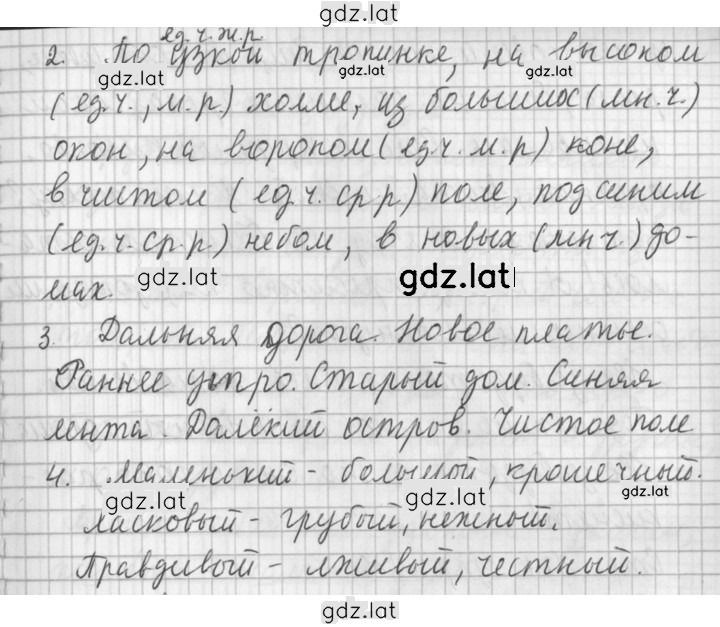 gdz.lat
ед.ч.ж.р.
2. По узкой тропинке, на высоком
gdz.lat gdz.lat gdz.lat
(ед.ч., м.р.) холме, из больших (мн.ч.)
окон, на вороном (ед.ч. м.р) коне,
в чистом (ед.ч. ср.р.) поле, под синим
(ед.ч. ср.р.) небом, в новых (мн.ч.) до-
gdz.lat gdz.lat
мах.
3. Дальняя дорога. Новое платье.
Раннее утро. Старый дом. Синяя
лента. Далёкий остров. Чистое поле
4. Маленький - большой, крошечный.
gdz.lat gdz.lat gdz.lat
Ласковый - грубый, нежный.
Правдивый - лживый, честный.
gdz.lat